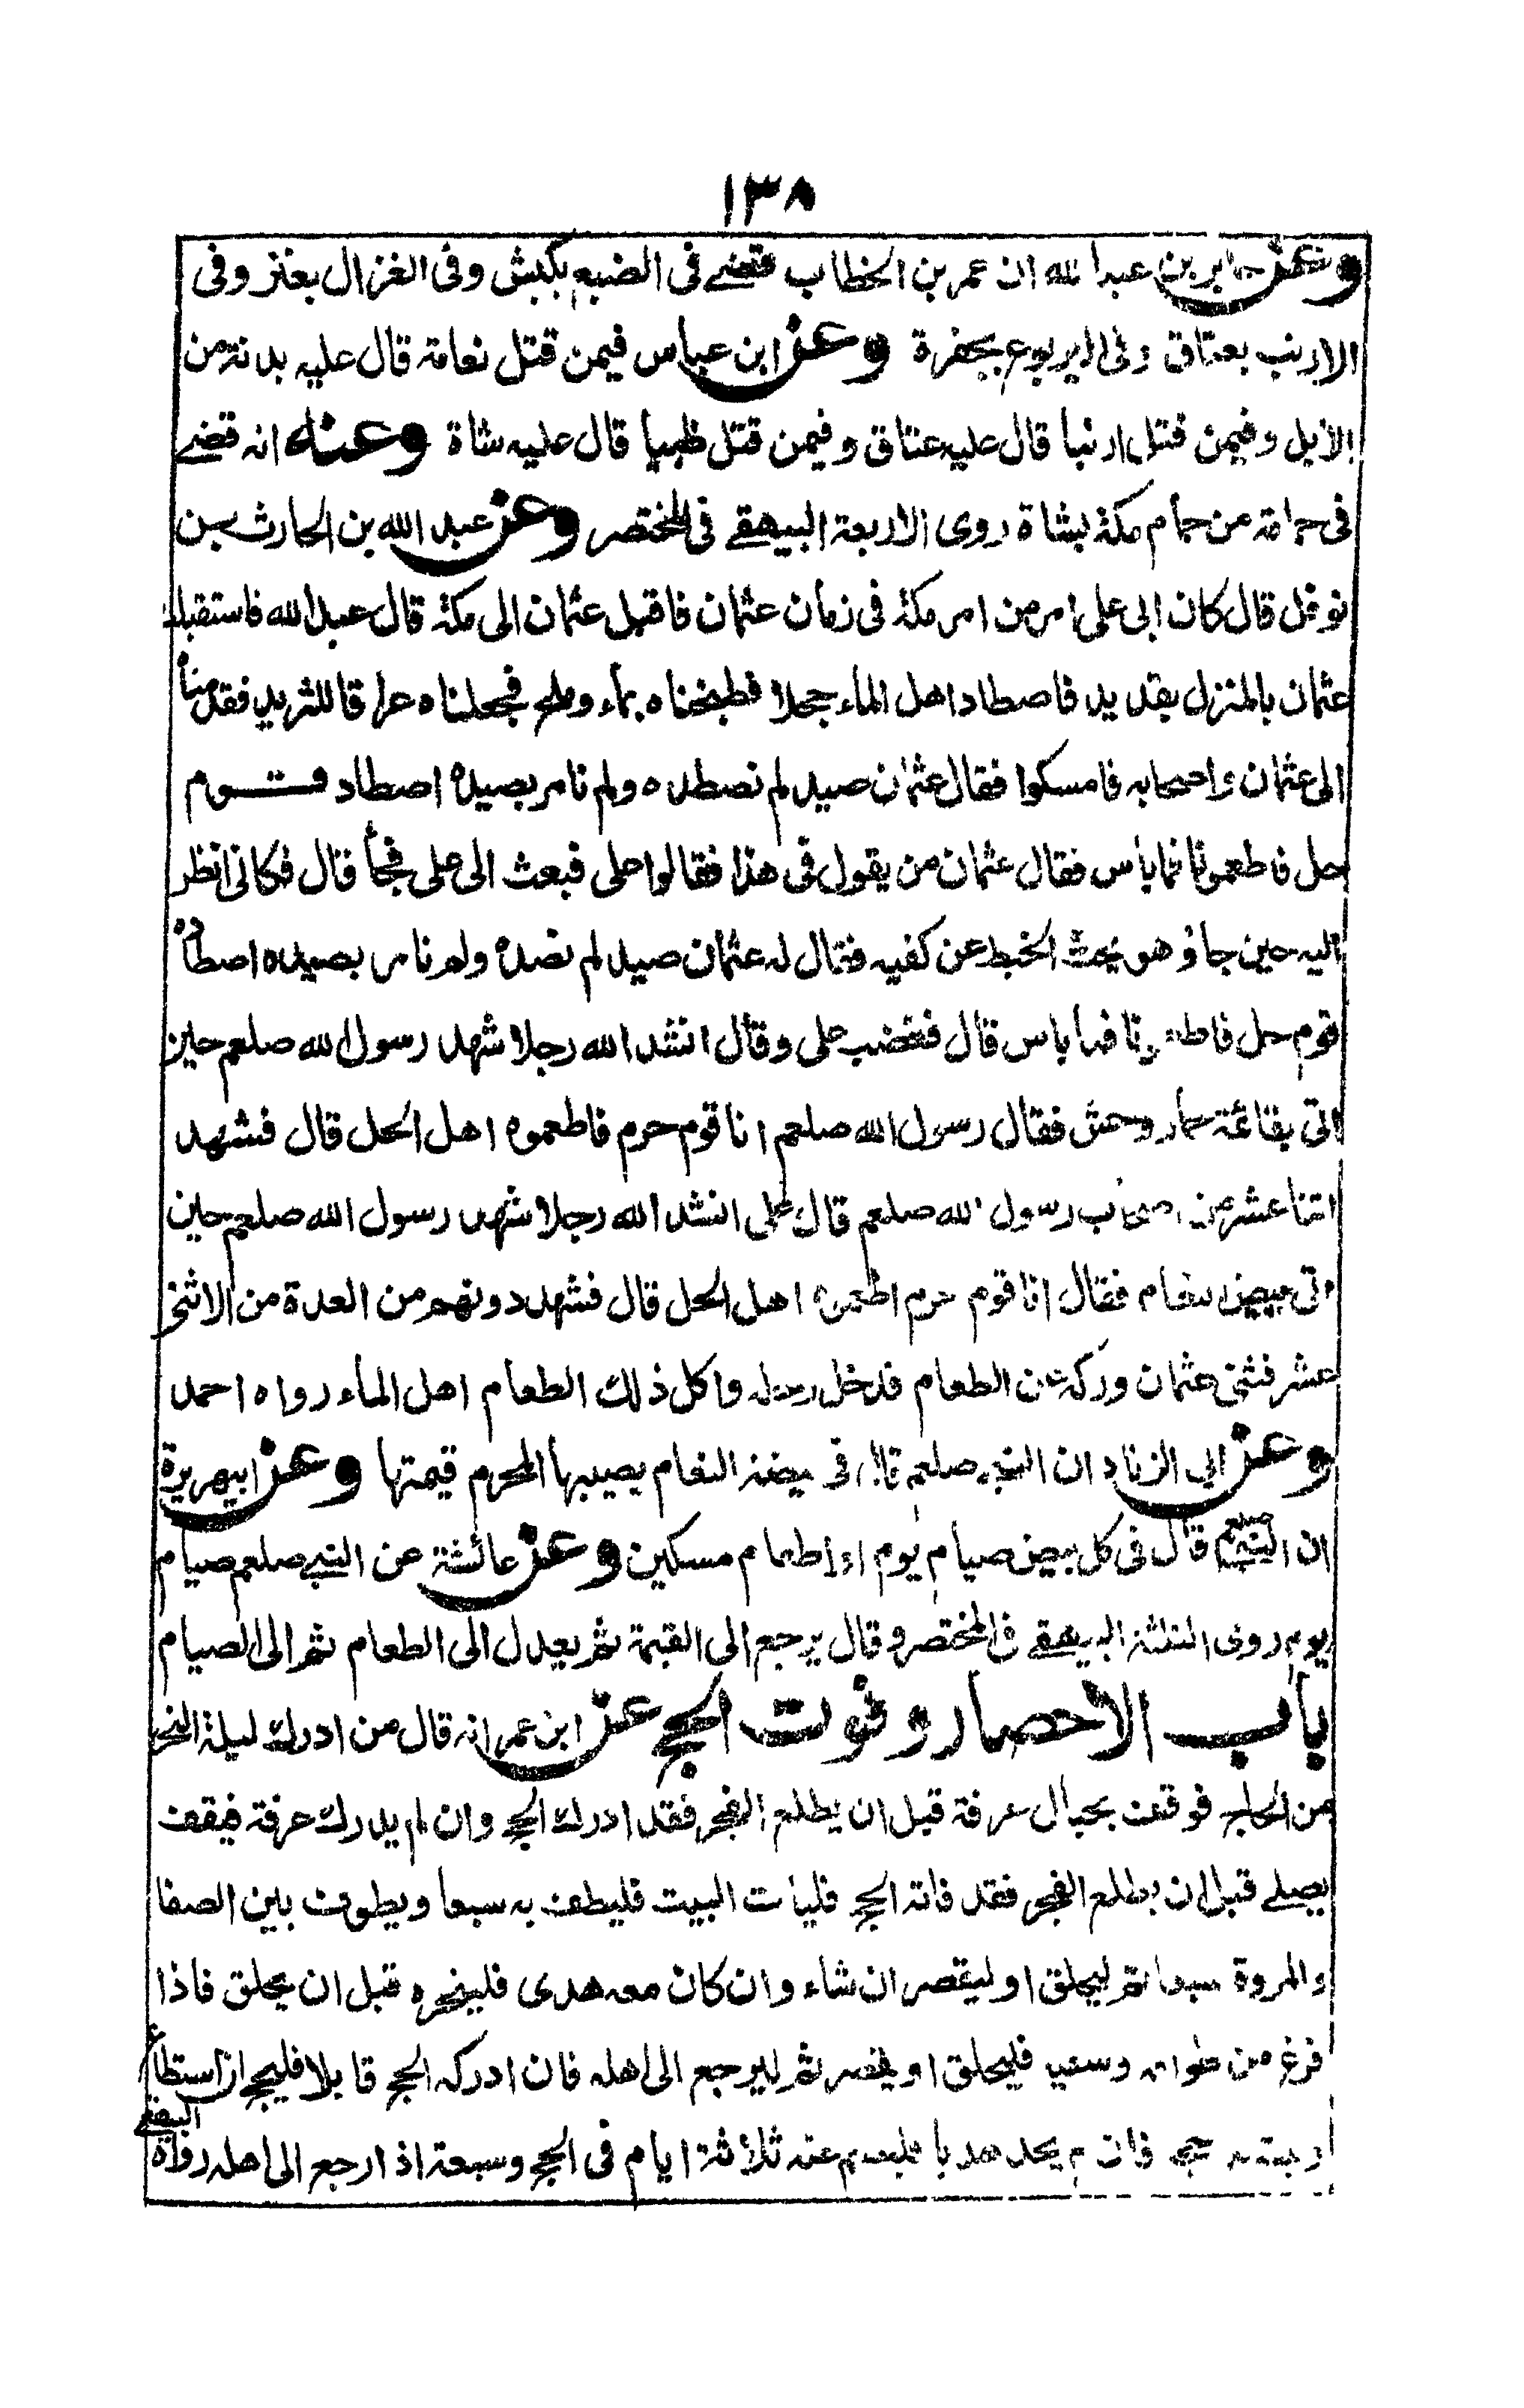 ١٣٨
وعن جابر بن عبدالله ان عمر بن الخطاب قضے فى الضبع بكبش وفى الغزال بعنز وفى
الارنب بعناق وفى اليربوع بجفرة وعن ابن عباس فيمن قتل نعامة قال عليه بدنة من
الابل وفيمن قتل ارنبا قال عليه عناق وفيمن قتل ظبيا قال عليه شاة وعنه انه قضے
فى حمامة من حمام مكة بشاة روى الاربعة البيهقے فى المختصر وعن عبد الله بن الحارث بن
نوفل قال كان ابى على امر من امر مكة فى زمان عثمان فاقبل عثمان الى مكة قال عبد الله فاستقبلت
عثمان بالمنزل بقديد فاصطاد اهل الماء حجلا فطبخناه بماء وملح فجعلناه عراقا للثريد فقدمنا
الى عثمان واصحابه فامسكوا فقال عثمان صيد لم نصطده ولم نامر بصيده اصطاد قوم
حل فاطعمونا فما بأس فقال عثمان من يقول فى هذا فقالوا على فبعث الى على فجأ قال فكانى انظر
اليه حين جاؤ هو يحث الخبط عن كفيه فقال له عثمان صيد لم نصده ولم نامر بصيده اصطاده
قوم حل فاطعمونا فما باس قال فغضب على وقال انشد الله رجلا شهد رسول الله صلعم حين
اتى بقائمة حمار وحش فقال رسول الله صلعم انا قوم حرم فاطعموه اهل الحل قال فشهد
اثنا عشر من اصحاب رسول الله صلعم قال على انشد الله رجلا شهد رسول الله صلعم حين
اتى ببيض النعام فقال انا قوم حرم اطعموه اهل الحل قال فشهد دونهم من العدة من الاثنى
عشر فثنى عثمان وركه عن الطعام فدخل رحله واكل ذلك الطعام اهل الماء رواه احمد
وعن ابى الزناد ان النبى صلعم قال فى بيضة النعام يصيبها المحرم قيمتها وعن ابيهريرة
ان النبى صلعم قال فى كل بيض صيام يوم او اطعام مسكين وعن عائشة عن النبے صلعم صيام
يوم روى الثلثة البيهقے فى المختصر وقال يرجع الى القيمة ثم يعدل الى الطعام ثم الى الصيام
باب الاحصار وفوت الحج عن ابن عمر انه قال من ادرك ليلة النحر
من الحاج فوقف بحبال عرفة قبل ان يطلع الفجر فقد ادرك الحج وان لم يدرك عرفة فيقف
يصلے قبل ان يطلع الفجر فقد فاته الحج فليات البيت فليطف به سبعا ويطوف بين الصفا
والمروة سبعا ثم ليحلق او ليقصر ان شاء وان كان معه هدى فلينحره قبل ان يحلق فاذا
فرغ من طوافه وسعيه فليحلق او يقصر ثم ليرجع الى اهله فان ادركه الحج قابلا فليحج ان استطاع
فان لم يجد هديا فليصم عنه ثلاثة ايام فى الحج وسبعة اذا رجع الى اهله رواه البيهقى